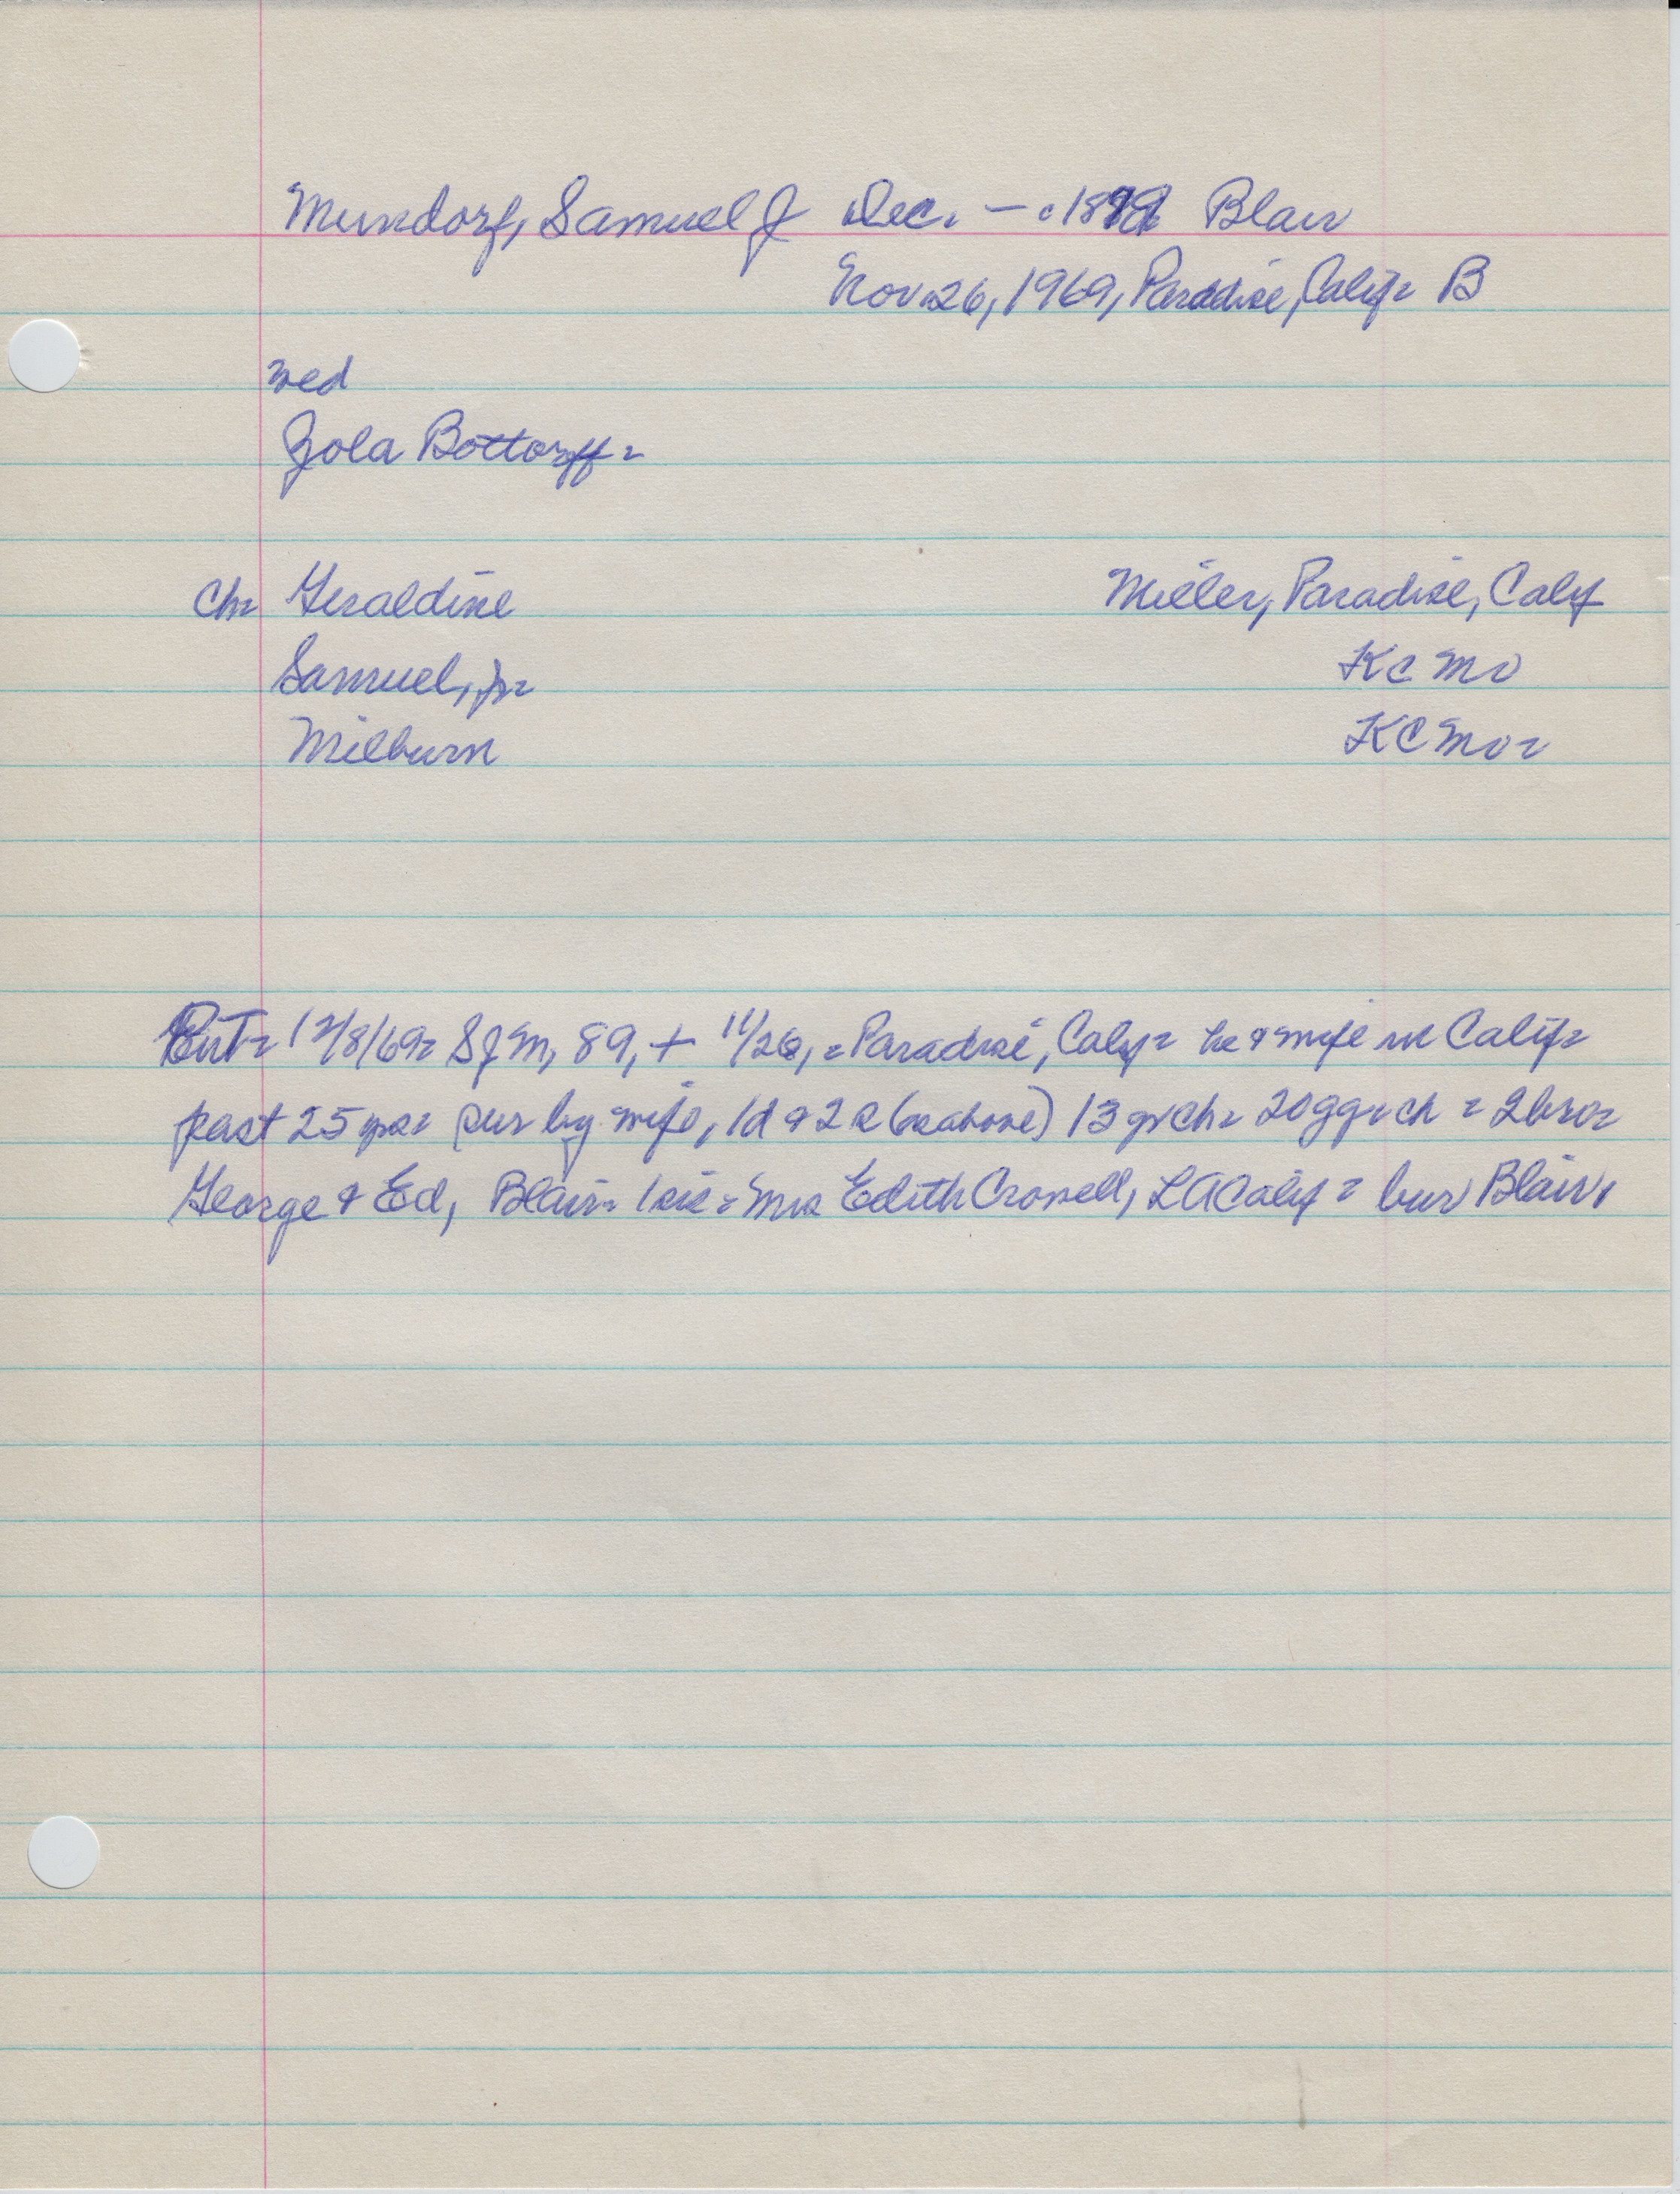 Mundorf, Samuel J Dec. — c1879 Blair
Nov 26, 1969, Paradise, Calif = B
wed
Zola Bottorff =
Ch = Geraldine Miller, Paradise, Calif
Samuel, Jr = KC Mo
Milburn KC Mo =
12/8/69 = SJM, 89, + 11/26, = Paradise, Calif = he & wife in Calif =
past 25 yrs = sur by wife, 1d & 2s (se above) 13 gr ch = 20 gg ch = 2 bro =
George & Ed, Blair = 1 sis = Mrs Edith Crowell, LA Calif = bur Blair,